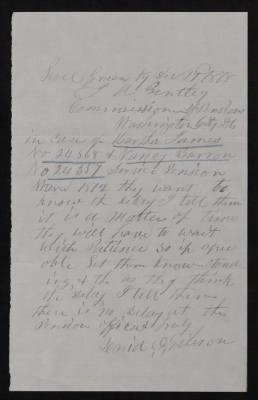 Bowl Green Ky Dec 19 1878
J A Bentley
Commissioner of Pensions
Washington City DC
in Case of Martha James
No 24568 & Nancy Barron
No 24657 Service Pension
War 1812 they want to
know the delay I tell them
it is a Matter of time
they will have to wait
with Patience So if agree
able let them know stand
ing & tho as they think
the delay I tell them
there is no delay at the
Pension office